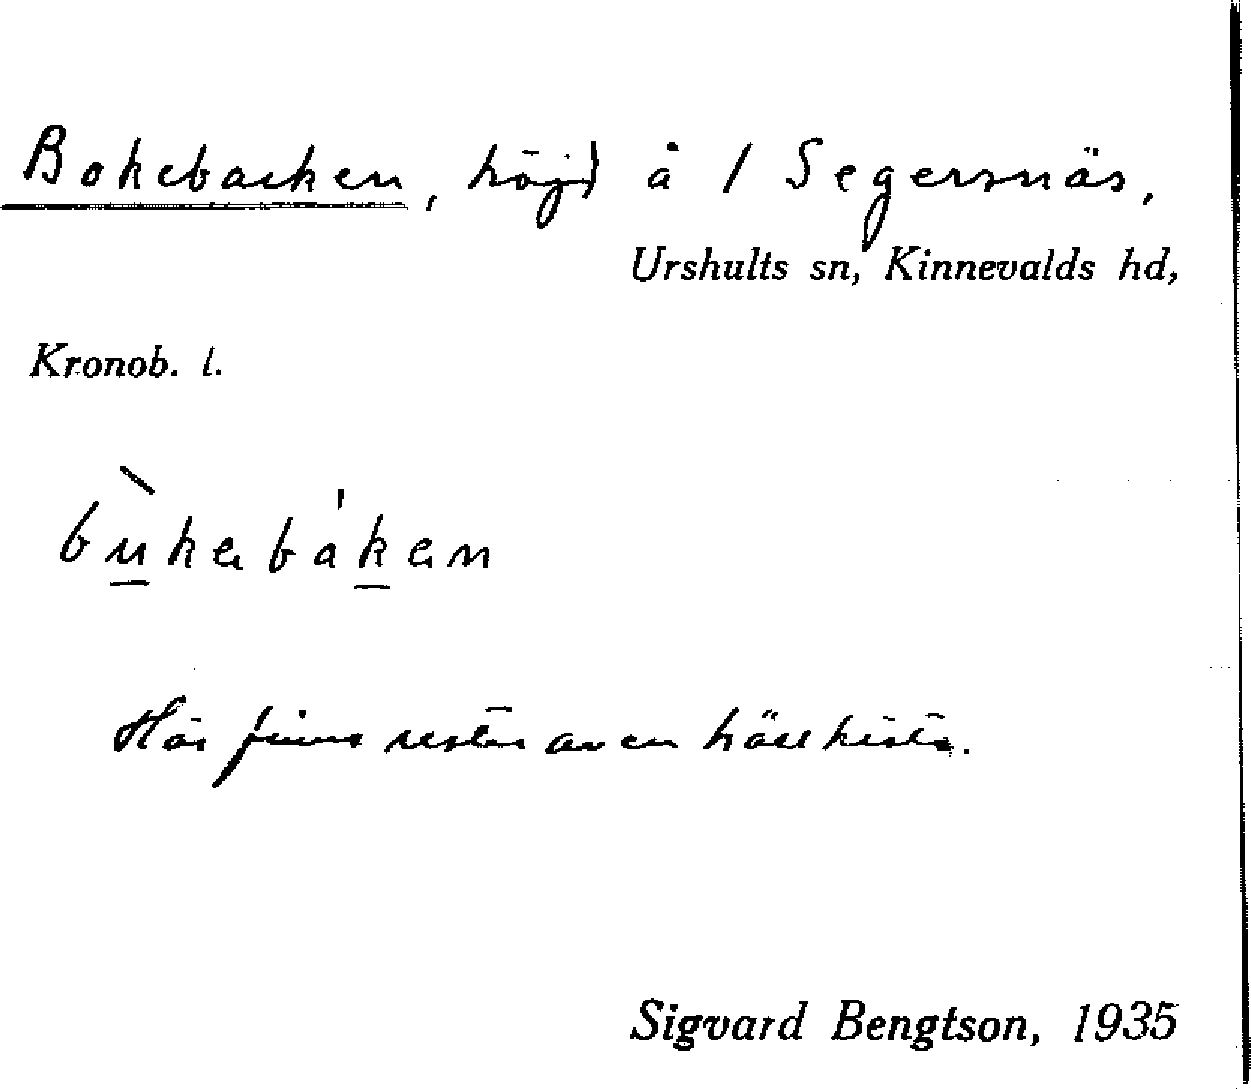 Bokebacken, höjd å 1 Segersnäs,
Urshults sn, Kinnevalds hd,
Kronob. l.
bùkebáken
Här finns rester av en hällkista.
Sigvard Bengtson, 1935